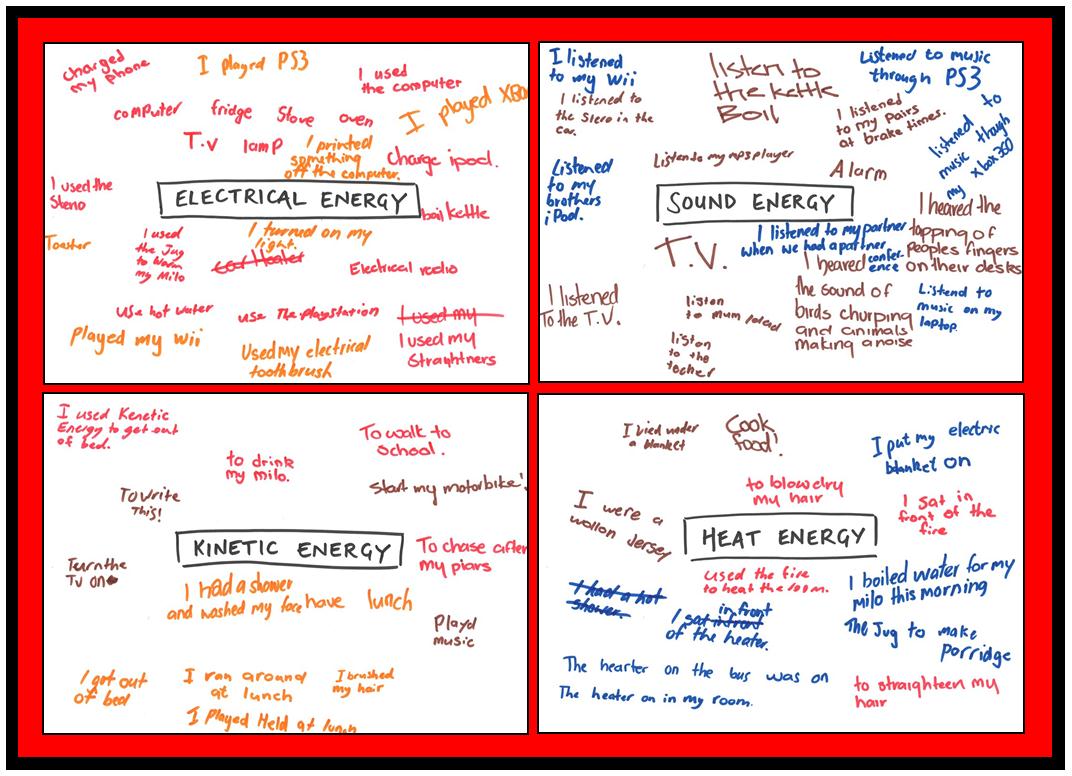 charged
my phone
I played PS3
I used
the computer
computer
fridge
Stove
oven
I played XBO
T.V
lamp
I printed
something
off the computer.
charge ipod.
I used the
Steno
ELECTRICAL ENERGY
boil kettle
Toaster
I used
the Jug
to warm
my Milo
I turned on my
light.
car Heater
Electrical radio
use hot water
use The playstation
I used my
I used my
Straghtners
Played my wii
Used my electrical
toothbrush
I listened
to my Wii
I listened to
the Stero in the
car.
listen to
the kettle
Boil
Listened to music
through PS3
I listened
to my Pairs
at brake times.
listened to
music though
my Xbox 360
Listened
to my
brothers
iPod.
Listen to my mp3 player
Alarm
SOUND ENERGY
I heared the
tapping of
peoples fingers
on their desks
T.V.
I listened to my partner
when we had a partner
confer-
ence
I heared
the sound of
birds churping
and animals
making a noise
I listened
To the T.V.
listen
to mum/dad
listen
to the
techer
Listend to
music on my
laptop.
I used Kenetic
Energy to get out
of bed.
to drink
my milo.
To walk to
school.
To write
This!
start my motorbike!
KINETIC ENERGY
To chase after
my piars
Turn the
TV on
I had a shower
and washed my face
have lunch
Playd
music
I got out
of bed
I ran around
at lunch
I brushed
my hair
I Played Held at lunch
I lied under
a blanket
Cook
food!
I put my electric
blanket on
to blowdry
my hair
I were a
wollon Jersey
I sat in
front of the
fire
HEAT ENERGY
used the fire
to heat the room.
I boiled water for my
milo this morning
I had a hot
shower.
in front
I sat infront
of the heater.
The Jug to make
porridge
The hearter on the bus was on
The heater on in my room.
to straighteen my
hair